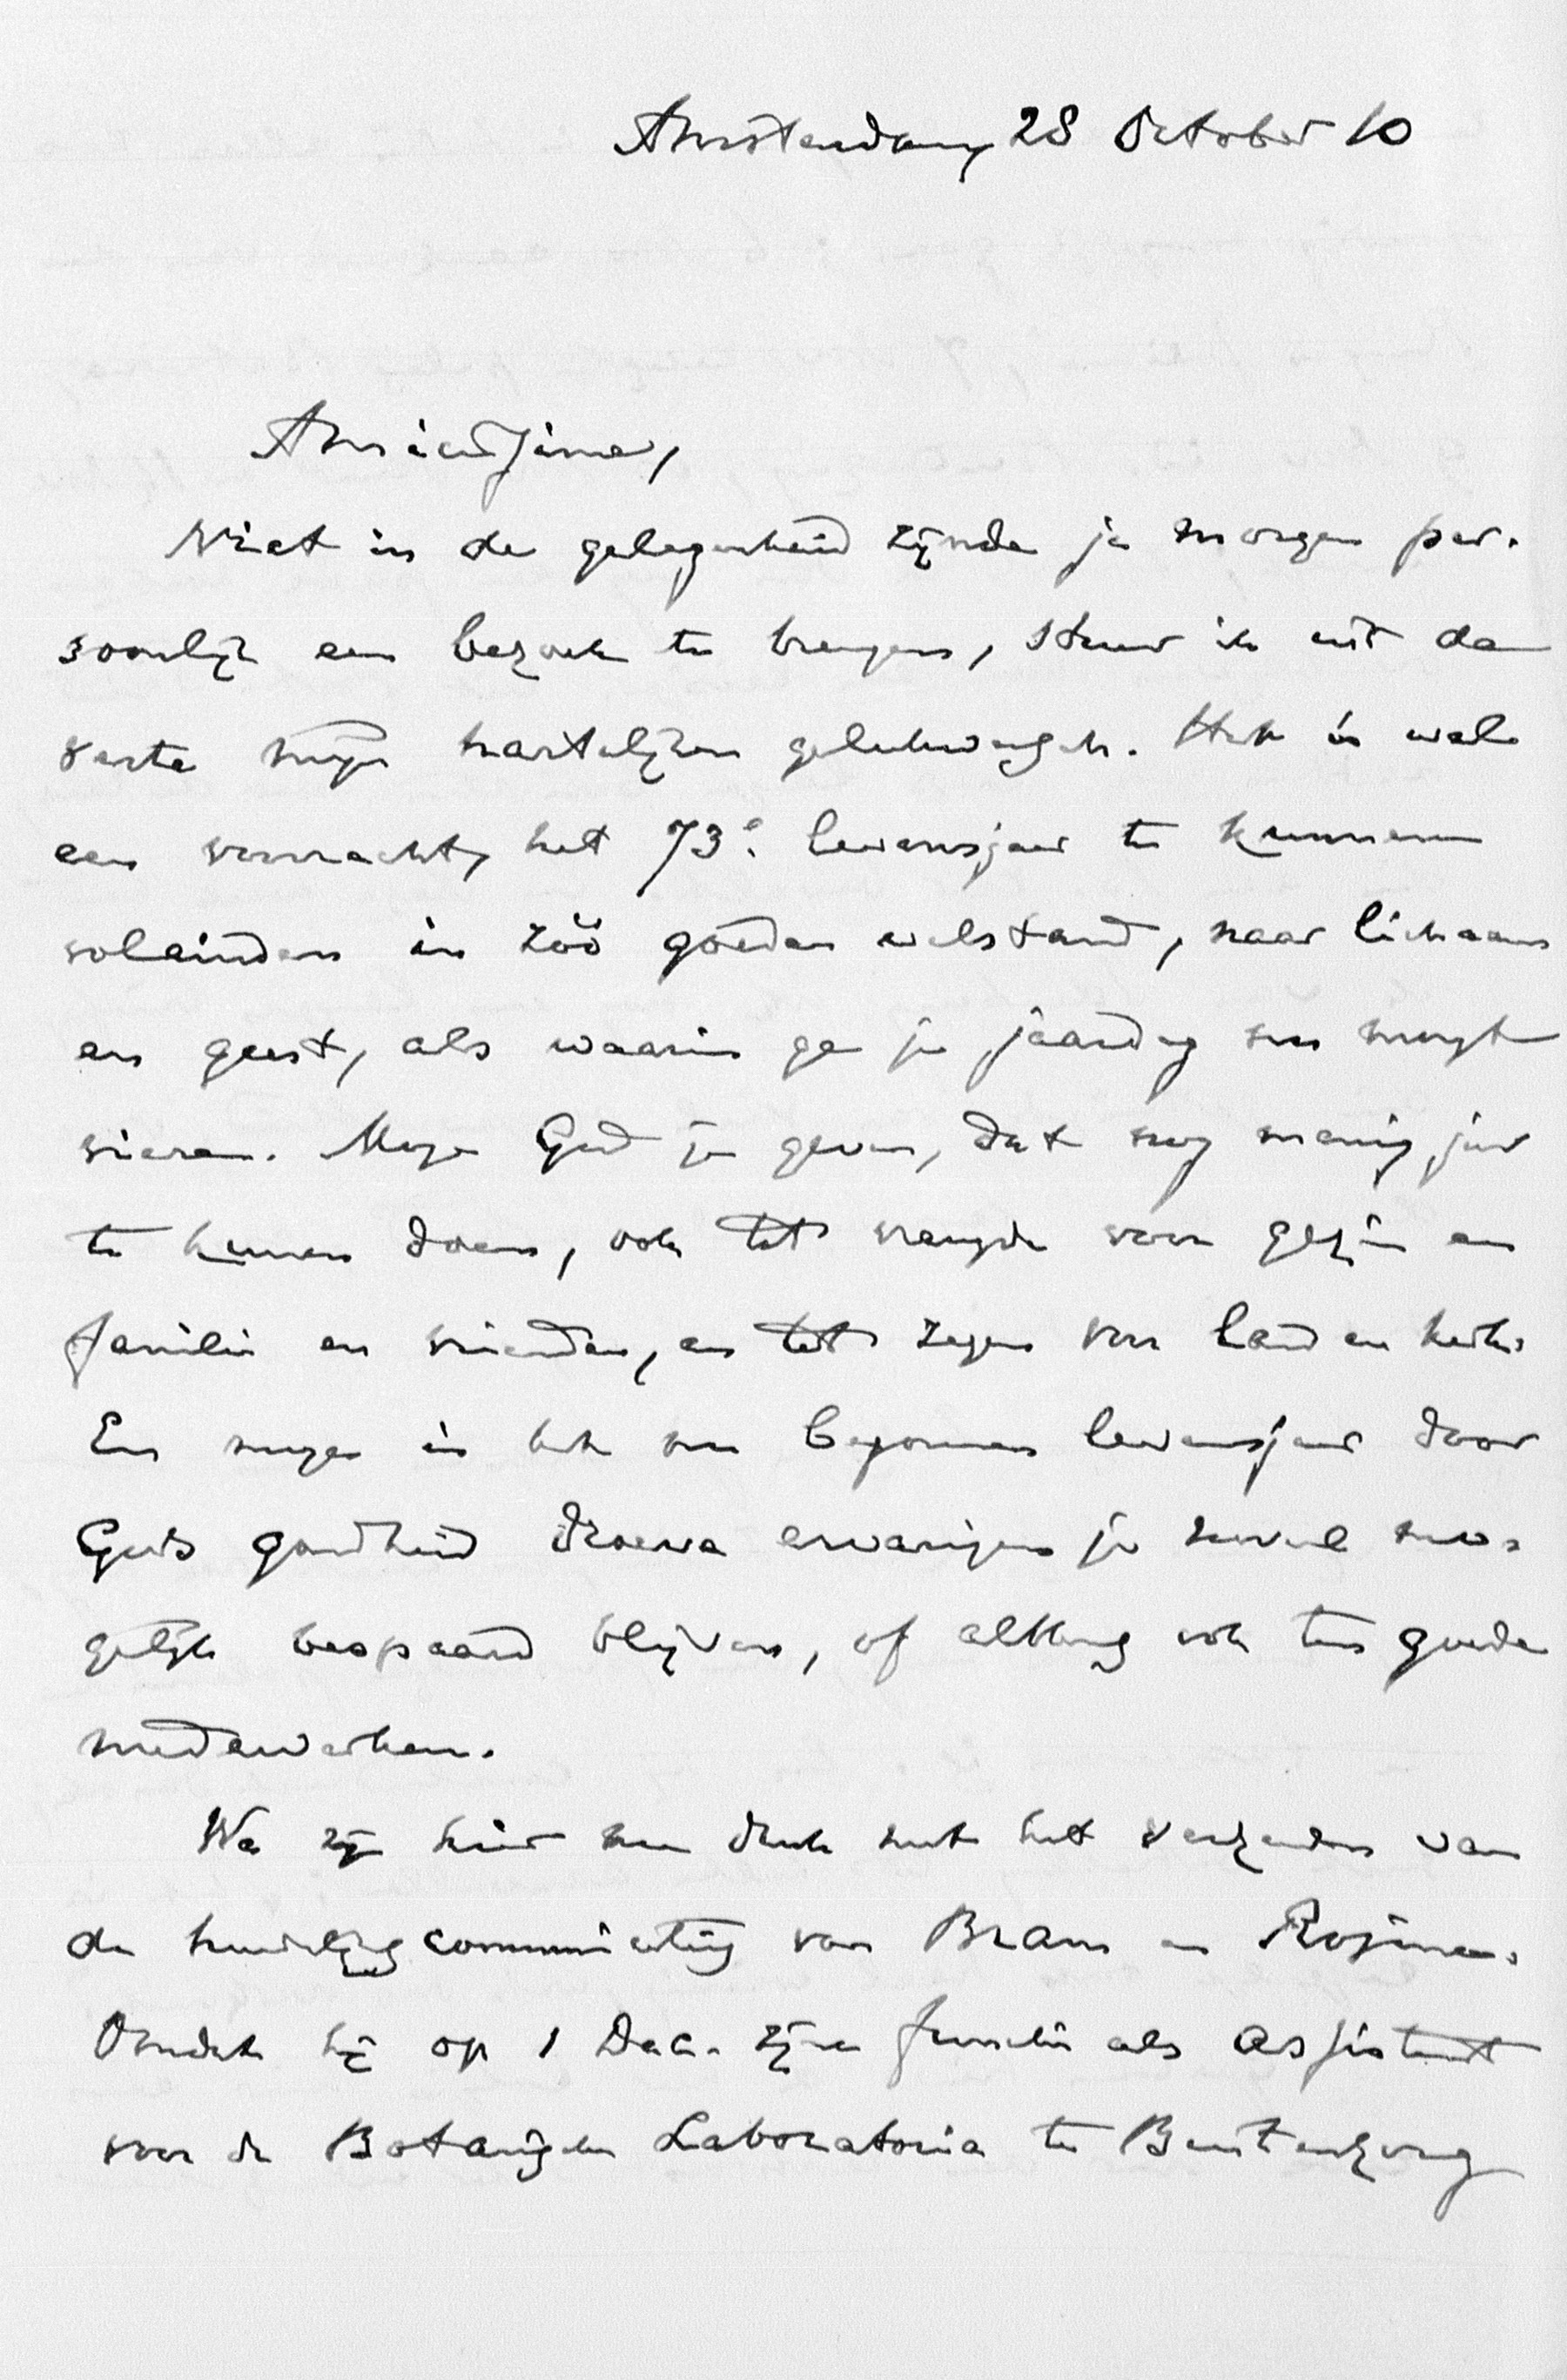 Amsterdam, 28 October 10
Amicissime,
Niet in de gelegenheid zijnde je morgen per-
soonlijk een bezoek te brengen, stuur ik uit de
verte mijn hartelijken gelukwensch. Het is wel
een voorrecht, het 73e levensjaar te kunnen
voleinden in zóó goeden welstand, naar lichaam
en geest, als waarin ge je jaardag nu moogt
vieren. Moge God je geven, dat nog menig jaar
te kunnen doen, ook tot vreugde voor gezin en
familie en vrienden, en tot zegen voor land en kerk.
En moge in het nu begonnen levensjaar door
Gods goedheid droeve ervaringen je zooveel mo-
gelijk bespaard blijven, of althans ook ten goede
medewerken.
We zijn hier nu druk met het verzenden van
de huwelijkscommunicatie van Bram en Rosina.
Omdat hij op 1 Dec. zijne functie als assistent
voor de Botanische Laboratoria te Buitenzorg